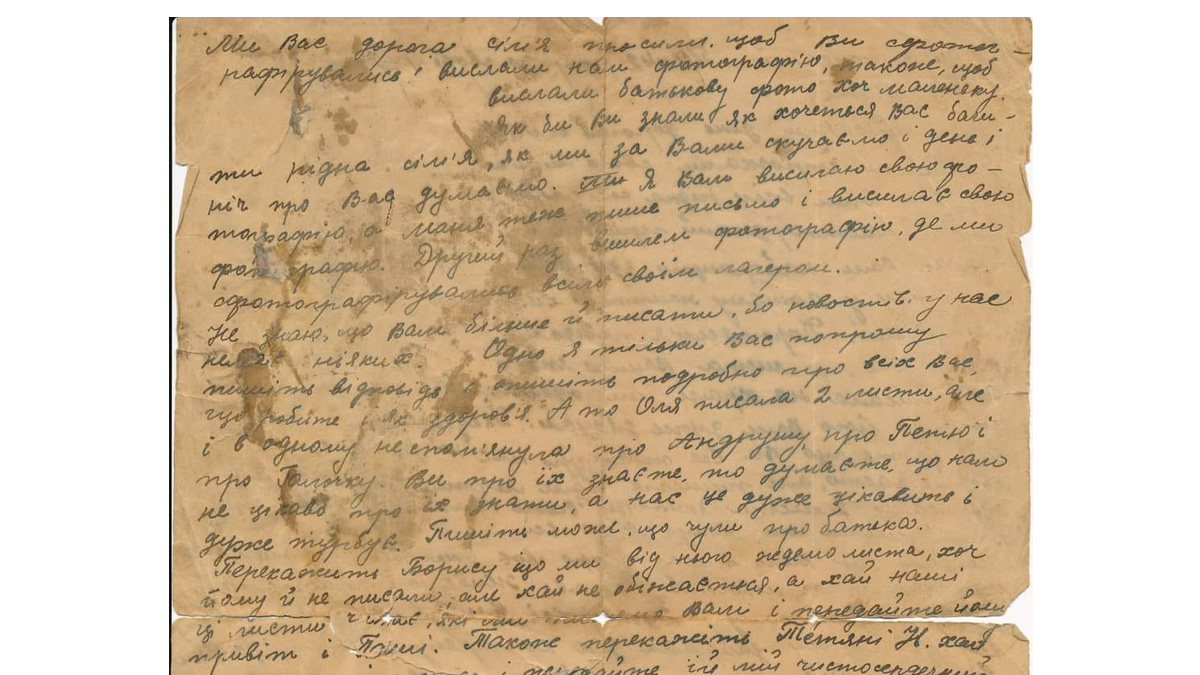 Ми Вас дорога сім'я просили, щоб Ви сфотог-
рафірувались і вислали нам фотографію, також, щоб
вислали батькову фото хоч маленьку.
Як би Ви знали як хочеться Вас бачи-
ти рідна сім'я, як ми за Вами скучаємо і день і
ніч про Вас думаємо. Я Вам висилаю свою фо-
тографію, а Маня теж пише письмо і висилає свою
фотографію. Другий раз вишлем фотографію, де ми
сфотографірувались всім своїм лагером.
Не знаю, що Вам більше й писати, бо новостів у нас
немає ніяких. Одно я тільки Вас попрошу
пишіть відповідь і опишіть подробно про всіх Вас,
що робите і як здоров'я. А то Оля писала 2 листи, але
і в одному не спом'янула про Андрушу, про Петю і
про Галочку. Ви про їх знаєте, то думаєте, що нам
не цікаво про їх знати, а нас це дуже цікавить і
дуже турбує. Пишіть може, що чули про батька.
Перекажить Борису що ми від нього ждемо листа, хоч
йому й не писали, але хай не обіжається, а хай наші
ці листи читає, які ми пишемо Вам і передайте йому
привіт і Паші. Також перекажіть Тетяні Н. хай
їй мій чистосердечний